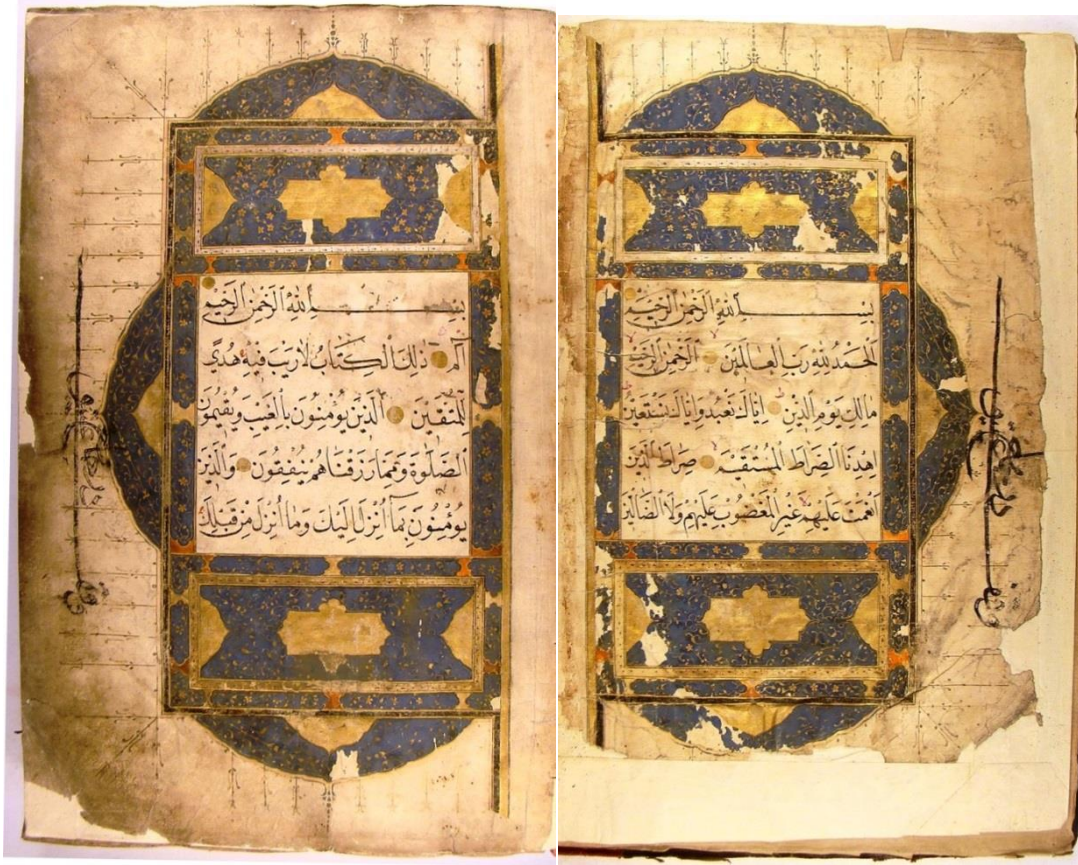 بسم الله الرحمن الرحيم
الحمد لله رب العالمين الرحمن الرحيم
مالك يوم الدين اياك نعبد واياك نستعين
اهدنا الصراط المستقيم صراط الذين
انعمت عليهم غير المغضوب عليهم ولا الضالين
بسم الله الرحمن الرحيم
الم ذلك الكتاب لا ريب فيه هدى
للمتقين الذين يؤمنون بالغيب ويقيمون
الصلوة ومما رزقناهم ينفقون والذين
يؤمنون بما انزل اليك وما انزل من قبلك